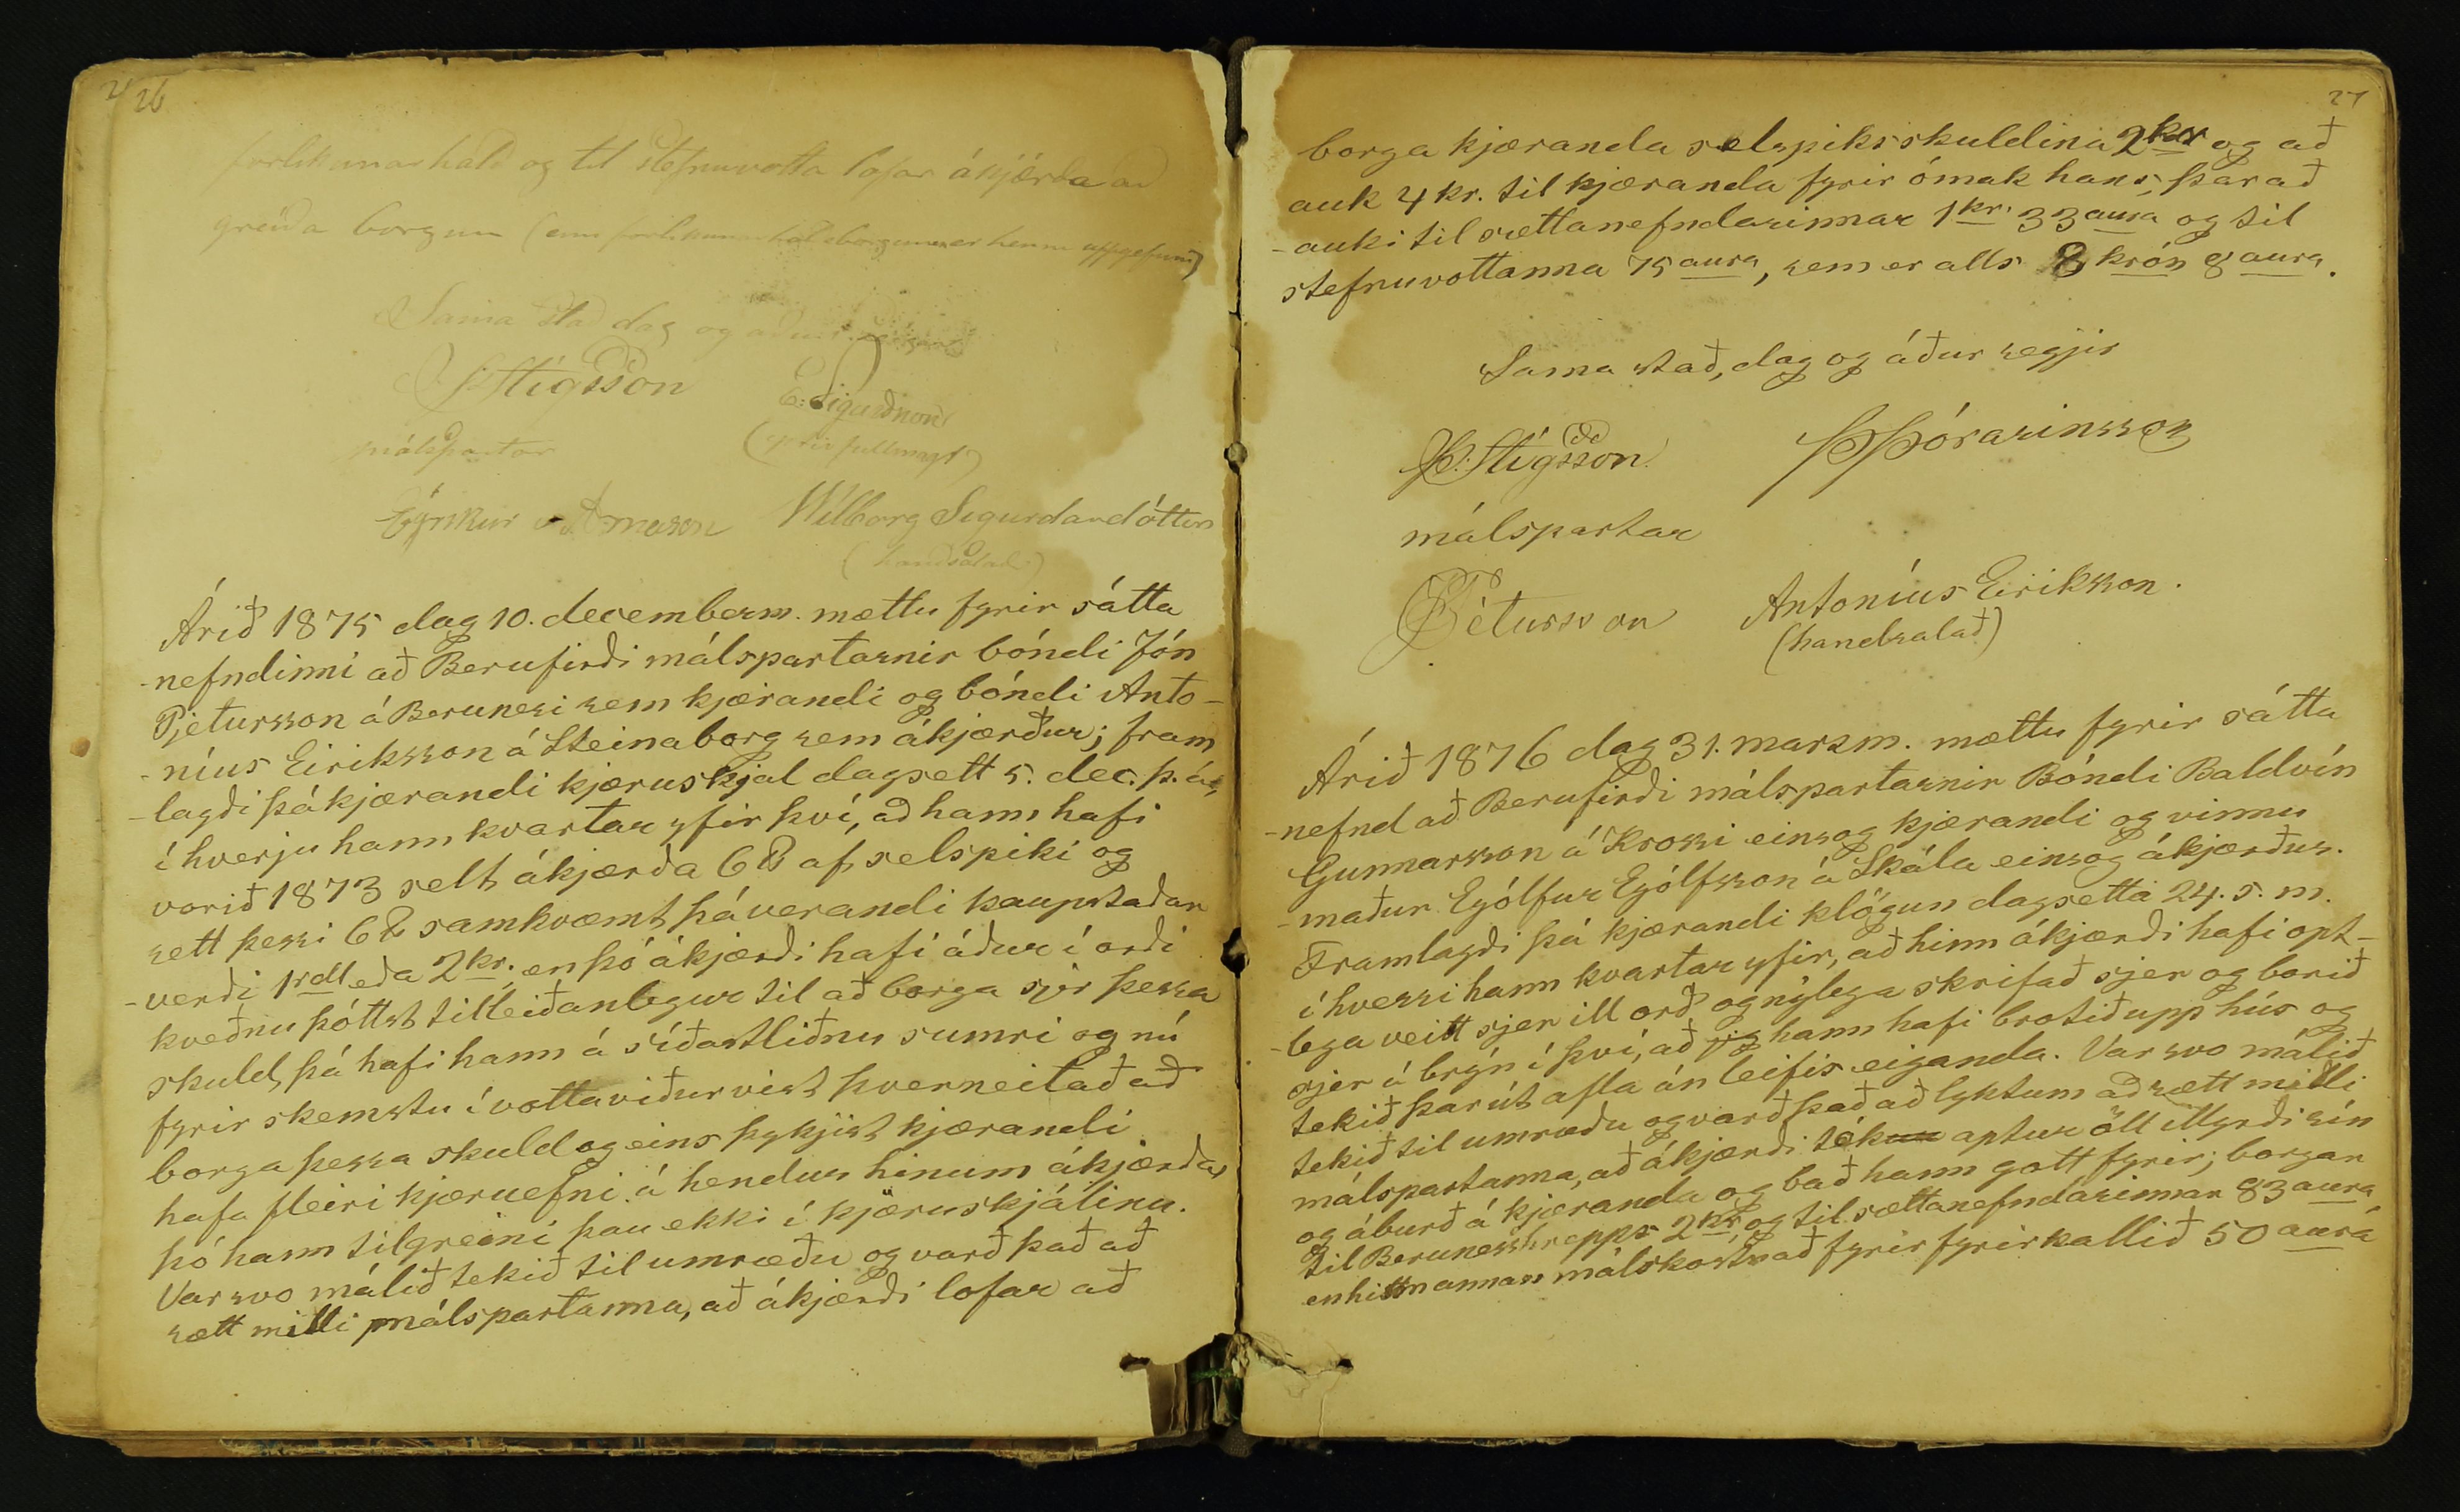 26
forlikunarhald og til stefnuvotta lofar ákjærða að
greiða borgun (enn forlikunarhaldsborgunin er henni uppgefinn)
Sama stað dag og áður segir
Stígsson E: Sigurðsson
málspartar (eptir fullmagt)
Arnason Vilborg Sigurdardóttir
(handsalað)
Árið 1875 dag 10. decemberm. mættu fyrir sátta
-nefndinni að Berufirði málspartarnir bóndi Jón
Pjetursson á Berunesi sem kjærandi og bóndi Anto-
-níus Eiriksson á Steinaborg sem ákjærður; fram
-lagði þá kjærandi kjæruskjal dagsett 5. dec. þ. ár,
í hverju hann kvartar yfir því, að hann hafi
vorið 1873 selt ákjærða 6 ℔ af selspiki og
sett þessi 6 ℔ samkvæmt þáverandi kaupstaðar
-verði 1 rdl eða 2 kr. en þó ákjærði hafi áður í orði
kveðnu þóttst tilleiðanlegur til að borga sjer þessa
skuld, þá hafi hann á síðastliðnu sumri og nú
fyrir skemstu í vottaviðurvist þverneitað að
borga þessa skuld og eins þykjist kjærandi
hafa fleiri kjæruefni á hendur hinum ákjærða,
þó hann tilgreini þau ekki í kjæruskjalinu.
Var svo málið tekið til umræðu og varð það að
sætt milli málspartanna, að ákjærði lofar að
27
borga kjæranda selspiksskuldina 2 kr og að
auk 4 kr. til kjæranda fyrir ómak hans, þar að
-auki til sættanefndarinnar 1 kr. 33 aura og til
stefnuvottanna 75 aura, sem er alls 8 krón 8 aura.
Sama stað, dag og áður segjir
Stígsson. Þ Þórarinsson
málspartar
J Pétursson Antoníus Eiriksson.
(handsalað)
Árið 1876 dag 31. marzm. mættu fyrir sátta
-nefnd að Berufirði málspartarnir Bóndi Baldvín
Gunnarsson á Krossi eins og kjærandi og vinnu
-maður Eyólfur Eyólfsson á Skála eins og ákjærður.
Framlagði þá kjærandi klögun dagsetta 24. s. m.
í hvessi hann kvartar yfir, að hinn ákjærði hafi opt-
-lega veitt sjer ill orð og nýlega skrifað sjer og borið
sjer á brýn í því, að jeg hann hafi brotið upp hús og
tekið þar út afla án leifis eiganda. Var svo málið
tekið til umræðu og varð það að lyktum að sætt milli
málspartanna, að ákjærði tók aptur öll illyrði sín
og áburð á kjæranda og bað hann gott fyrir; borgar
til Berunesshrepps 2 kr, og til sættanefndarinnar 83 aura
en hinn annan málskostnað fyrir fyrirkallið 50 aura